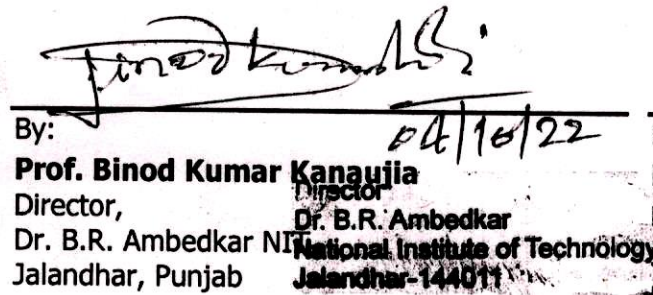 04/10/22
By:
Prof. Binod Kumar Kanaujia
Director,
Dr. B.R. Ambedkar NIT
Jalandhar, Punjab
Director
Dr. B.R. Ambedkar
National Institute of Technology
Jalandhar-144011